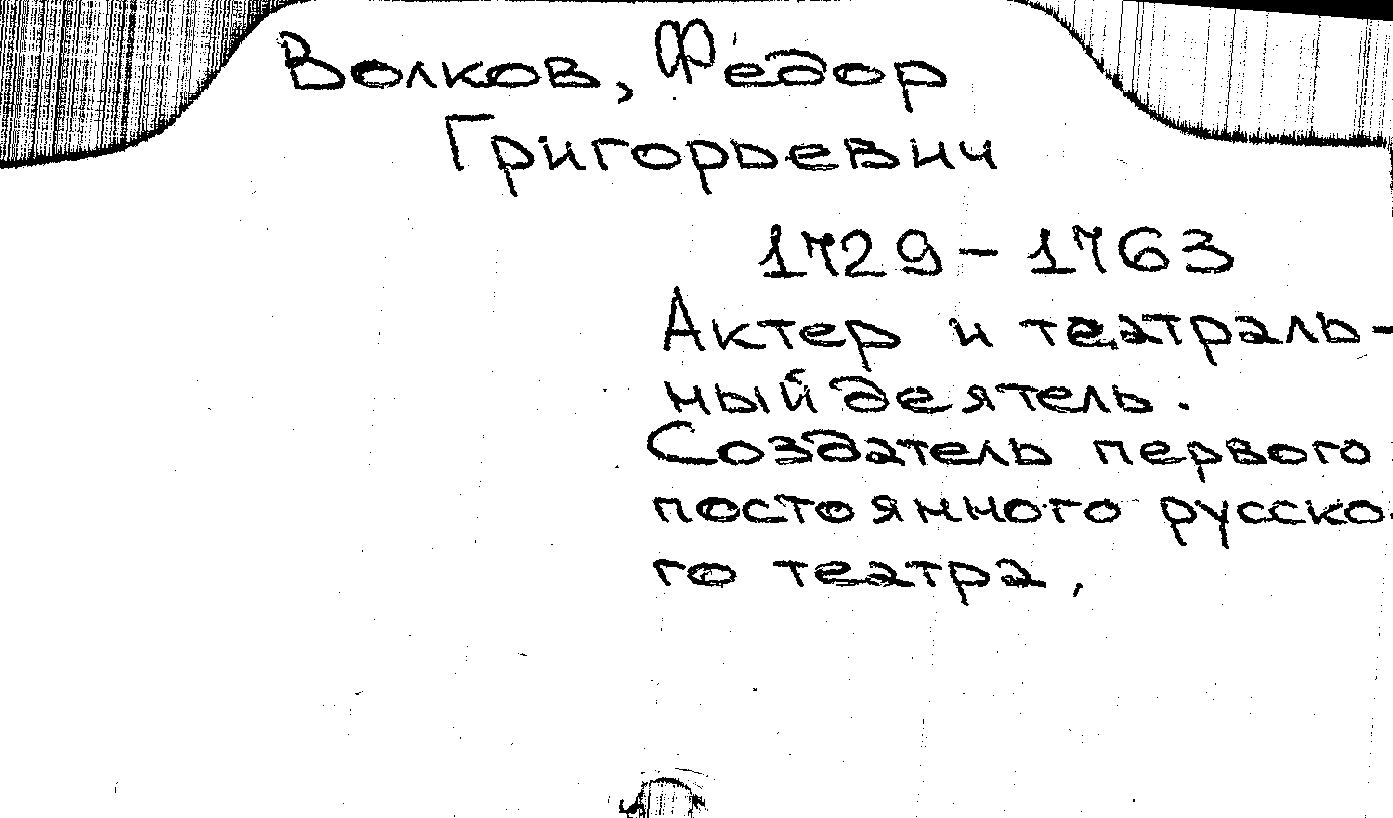 Волков, Федор
Григорьевич
1729-1763
Актер и театраль-
ный деятель.
Создатель первого
постоянного русско
го театра,